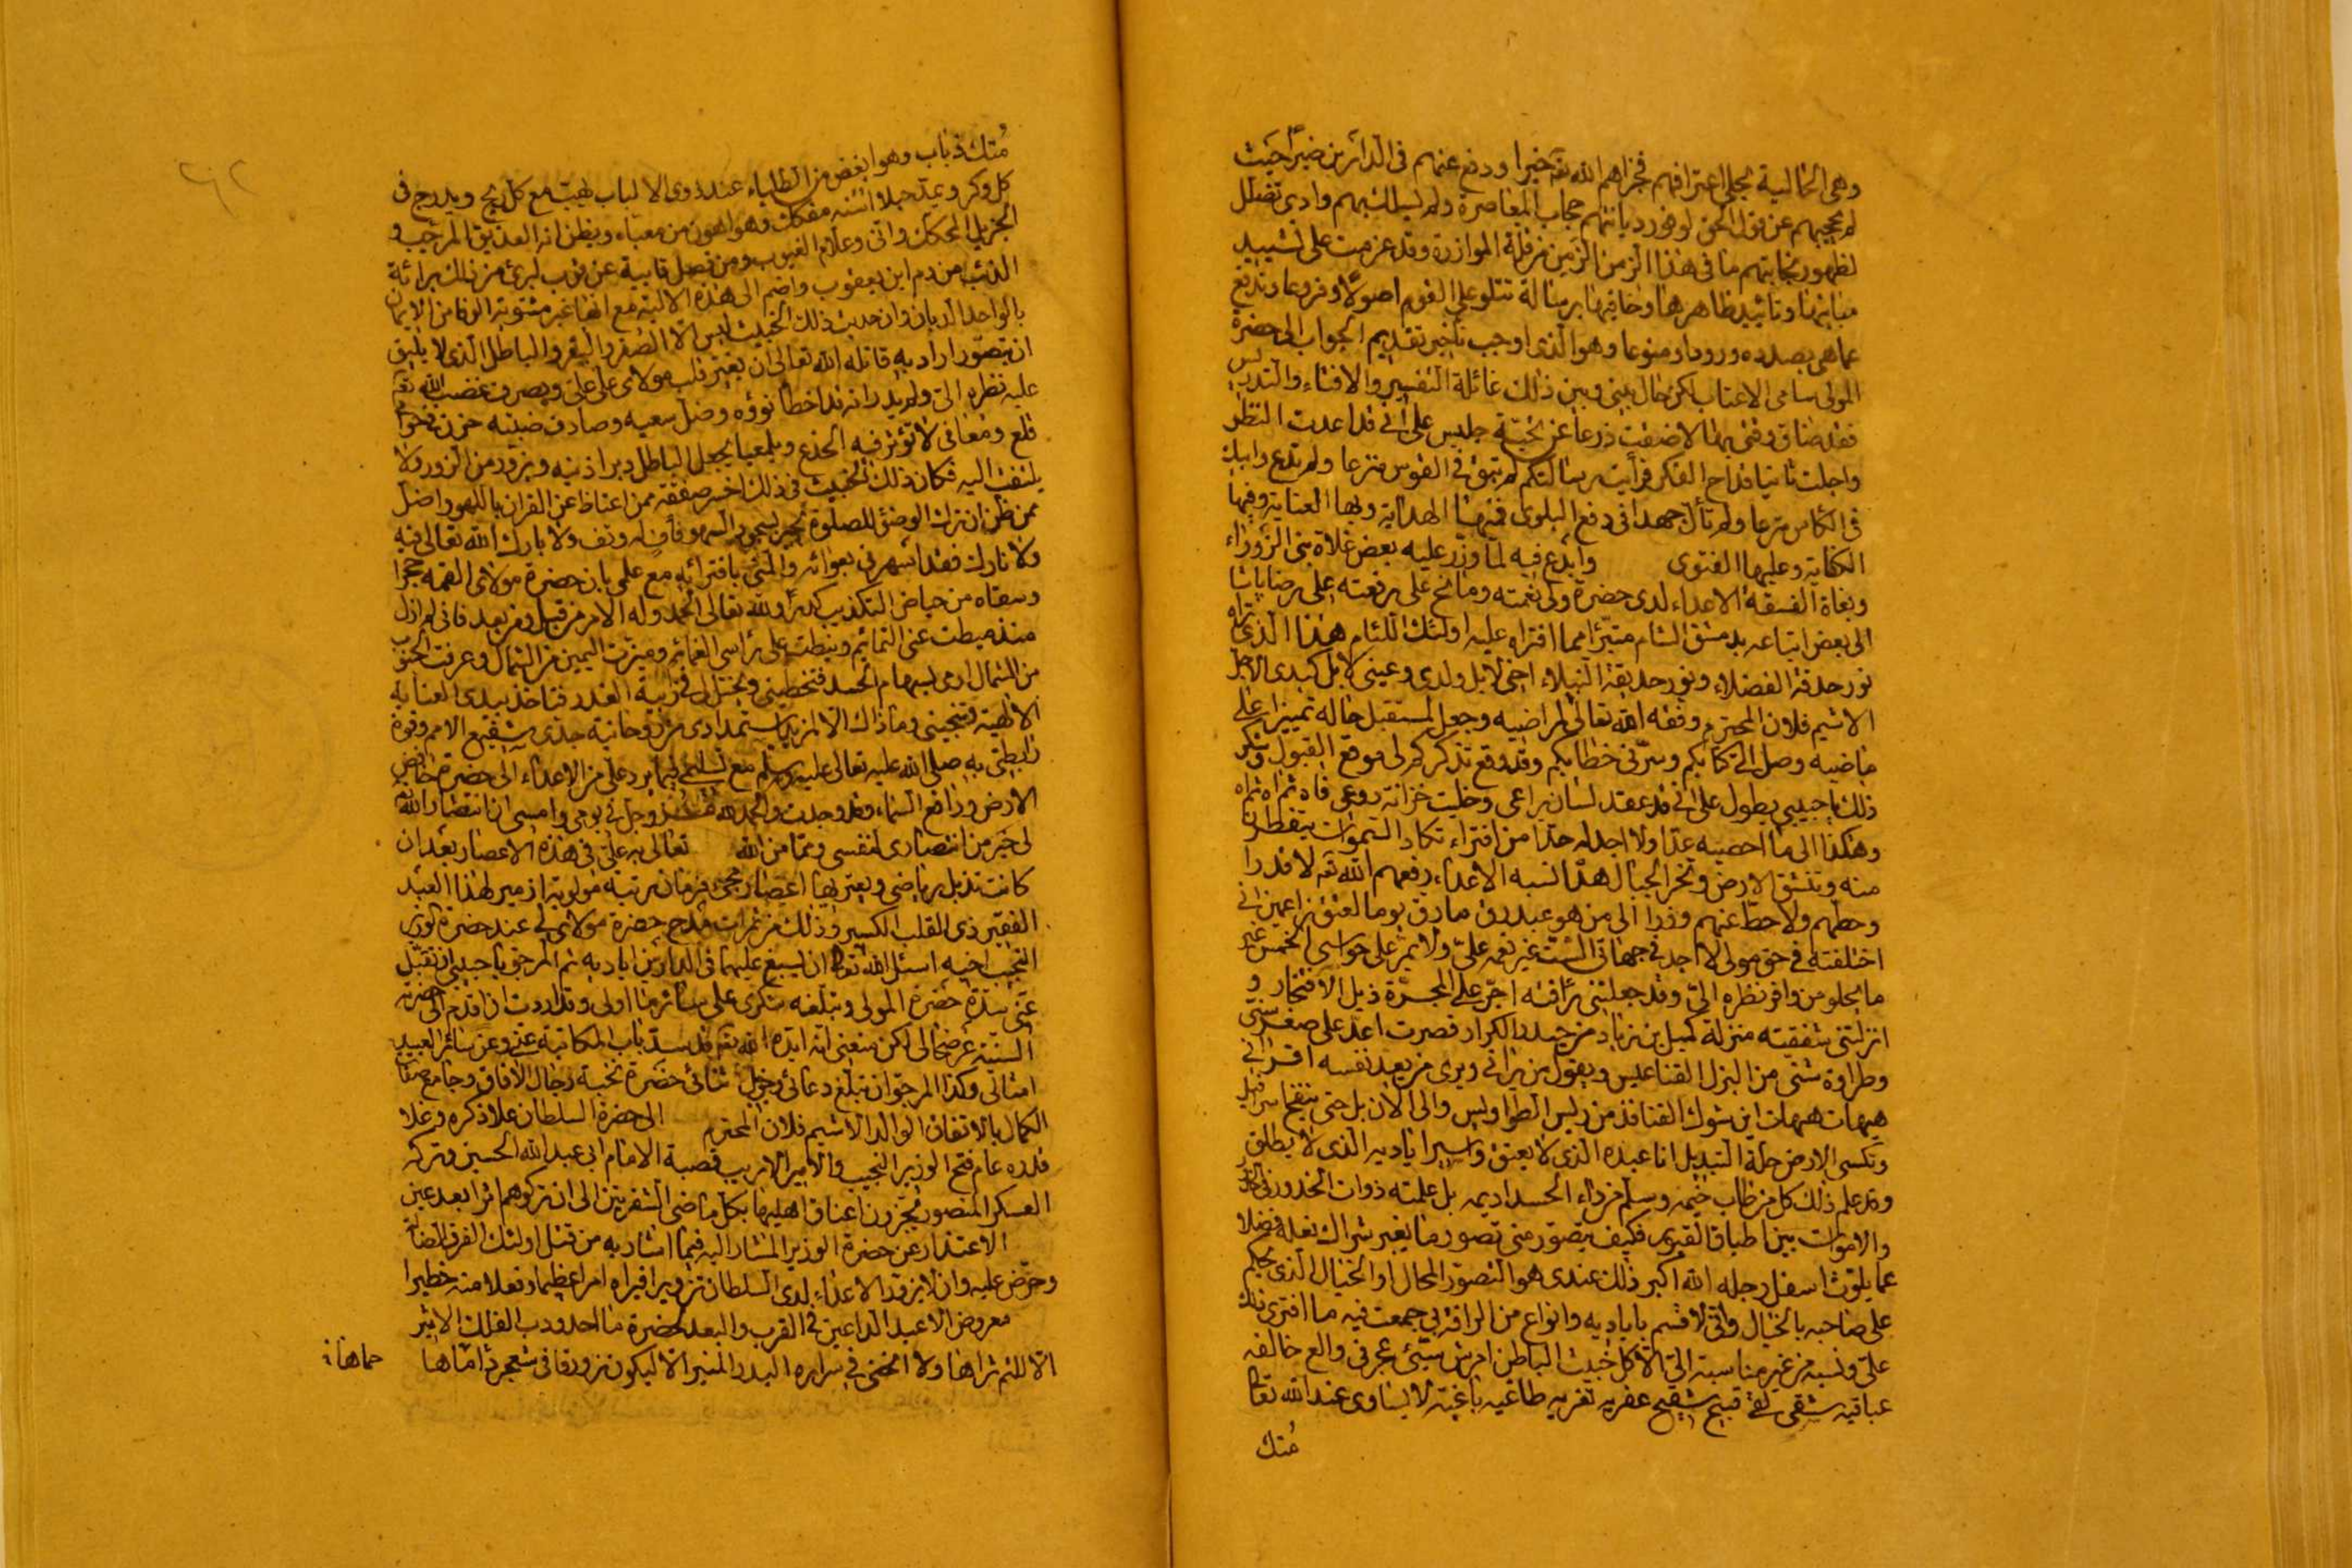 وهى الخالية بحلى اعترافهم فجزاهم الله تعم خيرا ودفع عنهم فى الدارين ضيرا حيث
لم يحجبهم عن قول الحق لوفور ديانتهم حجاب المعاصرة ولم يسلك بهم وادى تضلل
لظهور نجابتهم ما فى هذا الزمن الزمن من قلة الموازرة وقد عزمت على تشييد
مبانيها وتائييد ظاهرها وخافيها برسالة تتلو على القوم اصولا وفروعا وتدفع
عما هى بصدده ورودا ومنوعا وهو الذى اوجب تأخير تقديم الجواب الى حضرة
المولى سامى الاعتاب لكن حال بينى وبين ذلك غائلة التفسير والافتاء والتدريس
فقد ضاق وقتى بها لا ضقت ذرعا عن تحية جليس على انى قد اعدت النظر
واجلت ثانيا قداح الفكر فرأيت رسالتكم لم تبق فى القوس منزعا ولم تدع وابيك
فى الكأس مترعا ولم تأل جهدا فى دفع البلوى فمنها الهداية وبها العناية وفيها
الكفاية وعليها الفتوى وابدع فيه لما وزر عليه بعض غلاة بنى الزوراء
وبغاة الفسقة الاعداء لدى حضرة ولى نعمته ومانح على رفعته على رضا پاشا
الى بعض اتباعه بدمشق الشام متبرأ مما افتراه عليه اولئك اللئام هذا الذى تراه
نور حدقة الفضلاء ونور حديقة النبلاء اخى لا بل ولدى وعينى لا بل كبدى الاجل
الاشيم فلان المحترم وفقه الله تعالى لمراضيه وجعل مستقبل حاله تمييزا على
ماضيه وصل الى كتابكم وسرنى خطابكم وقد وقع تذكركم لى موقع القبول وشكر
ذلك يا حبيبى يطول على انى قد عقد لسان يراعى وخليت خزانة روعى فاه ثم اه ثم اه
وهكذا الى ما احصيه عدا ولا اجد له حدا من افتراء تكاد السموات يتفطرن
منه وتنشق الارض وتخر الجبال هدا نسبه الاعداء رفعهم الله تعم لا قدرا
وحطهم ولا حط عنهم وزرا الى من هو عبد رق مارق يوما لعتق زاعمين انى
اختلفته فى حق مولى لا اجد فى جهاتى الست غير نعمه على ولا يمر على حواسى الخمس غير
ما يحلو من وافر نظره الى وقد جعلتنى رأفته اجر على المجرة ذيل الافتخار و
انزلتنى شفقته منزلة كميل بن زياد من حيدر الكرار فصرت اعد على صغر سنى
وطراوة شنى من البزل القناعيس ويقول من يرانى ويرى من يعد نفسه اقرانى
هيهات هيهات اين شوك القنافذ من ريس الطواويس والى الان بل حتى ينفخ اسرافيل
وتكسى الارض حلة التبديل انا عبده الذى لا يعتق واسير اياديه الذى لا يطلق
وقد علم ذلك كل من طاب خيمه وسلم من داء الحسد اديمه بل علمته ذوات الخدور فى الخدور
والاموات بين اطباق القبور فكيف يتصور منى تصور ما يغبر شراك نعله فضلا
عما يلوث اسفل رجله الله اكبر ذلك عندى هو التصور المحال او الخيال الذى يحكم
على صاحبه بالخبال وانى لا قسم باياديه وانواع من الرافة بى جمعت فيه ما افترى ذلك
على ونسبه من غير مناسبة الى الا كل خبيث الباطن امرش سيئ عجرفى والع خالفه
عباقيه شقى لقى قبيح شقيح عفريه نفريه طاغيه باغية لا يساوى عند الله تعا
مُتك
٢٦٢
مُتك ذباب وهو ابغض من الطلياء عند ذوى الالباب يهب مع كل ريح ويدرج فى
كل وكر ويمد حبلا انثنه مفكك وهو اهون من معبأة ويظن انه العذيق المرجب و
الجزيل المحكك وانى وعلام الغيوب ومن فصل قابية عن قوب لبرئ من ذلك برائة
الذئب من دم ابن يعقوب واضم الى هذه الالية مع انها غير مشوبة الوفا من الايمان
بالواحد الديان وان حديث ذلك الخبيث ليس الا الصفر والبقر والباطل الذى لا يليق
ان يتصور اراد به قاتله الله تعالى ان يغير قلب مولاى على على ويصرف غضب الله تعم
عليه نظره الى ولم يدر انه قد اخطأ نوؤه وضل سعيه وصادف ضبثه حزن
قلع ومعافى لا تؤثر فيه الخدع ويلمعيا يجعل الباطل دبر اذنيه ويزور من الزور ولا
يلتفت اليه فكان ذلك الخبيث فى ذلك اخسر صفقة ممن اعتاظ عن القران باللهو واضل
ممن ظن ان ترك الوضؤ للصلوة يجبر بسجود السهو فأف له وتف ولا بارك الله تعالى فيه
ولا تارك فقد اسهرنى بعوائه والمنى بافترائه مع علمى بان حضرة مولاى القمه حجرا
وسقاه من حياض التكذيب كدرا ولله تعالى الحمد وله الامر من قبل ومن بعد فانى لم ازل
منذ ميطت عنى التمائم ونيطت على رأسى العمائم وميزت اليمين من الشمال وعرفت الجنوب
من الشمال ارمى بسهام الحسد فتخطينى ويختل لى فى زبية الغدر فتاخذ بيدى العناية
الالهية فتنجينى وما ذاك الا لمزيد استمدادى من روحانية جدى شفيع الامم وقوة
رابطتى به صلى الله عليه تعالى عليه وسلم مع تسليمى لما يرد على من الاعداء الى حضرة خافض
الارض ورافع السماء وقد وجدت والحمد لله عز وجل فى يومى وامسى ان انتصار الله
لى خير من انتصارى لنفسى ومما من الله تعالى به على فى هذه الاعصار بعد ان
كانت تذبل رياضى ويعتريها اعصار مجئ فرمان برتبة مولوية ازمير لهذا العبد
الفقير ذى القلب الكسير وذلك من ثمرات مدح حضرة مولاى لى عند حضرة الوزير
النجيب اخيه اسئل الله تعالى ان يسبغ عليهما فى الدارين اياديه ثم المرجو يا حبيبى ان تقبل
عنى سدة حضرة المولى وتبلغه شكرى على سائر ما اولى وقد اردت ان اقدم الى حضرته
السنية عرضحالى لكن منعنى انه ايده الله تعم قد سد باب المكاتبة عنى وعن سائر العبيد
امثالى وكذا المرجو ان تبلغ دعائى وجزيل ثنائى حضرة نخبة رجال الافاق وجامع صفات
الكمال بالاتفاق الوالد الاشيم فلان المحترم الى حضرة السلطان علا ذكره وغلا
قدره عام فتح الوزير النجيب والامير الاريب قصبة الامام ابى عبد الله الحسين وتركه
العسكر المنصور يجزون اعناق اهليها بكل ماضى الشفرتين الى ان تركوهم اثرا بعد عين
الاعتذار عن حضرة الوزير المشار اليه فيما اشار به من قتل اولئك الفرق الضالة
وحرض عليه وان لا يزور الاعداء لدى السلطان تزويرا فيراه امرا عظيما وفعلا منه خطيرا
معروض الاعبد الداعين فى القرب والبعد لحضرة ما احدودب الفلك الاثير
الا للثم ثراها ولا انخنى فى سراره البدر المنير الا ليكون زورقا فى شعجرة امّاها حماها